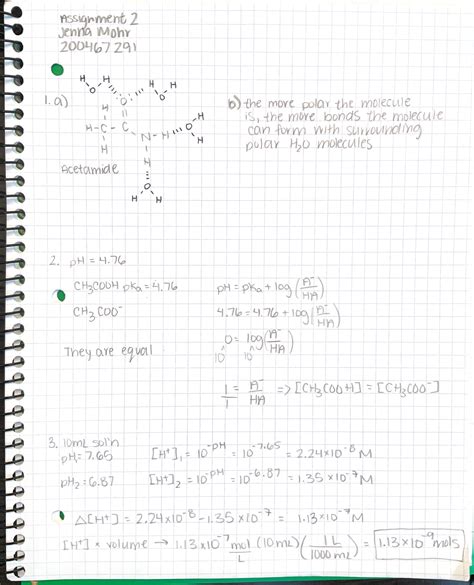 Assignment 2
Jenna Mohr
200467291
1. a)
H H H H
O O O
H O H
H-C-C N-H O
H H H
O
H H
Acetamide
b) the more polar the molecule
is, the more bonds the molecule
can form with surrounding
polar H₂O molecules
2. pH = 4.76
CH₃COOH pKa = 4.76
CH₃COO⁻
They are equal
pH = pKa + log(A⁻/HA)
4.76 = 4.76 + log(A⁻/HA)
0 = log(A⁻/HA)
10 10
1/1 = A⁻/HA => [CH₃COOH] = [CH₃COO⁻]
3. 10mL sol'n
pH₁ = 7.65 [H⁺]₁ = 10^-pH = 10^-7.65 = 2.24x10⁻⁸ M
pH₂ = 6.87 [H⁺]₂ = 10^-pH = 10^-6.87 = 1.35 x10⁻⁷ M
Δ[H⁺] = 2.24x10⁻⁸ - 1.35 x10⁻⁷ = 1.13x10⁻⁷ M
[H⁺] x volume → 1.13x10⁻⁷ mol/L (10mL)(1L/1000mL) = 1.13x10⁻⁹ mols